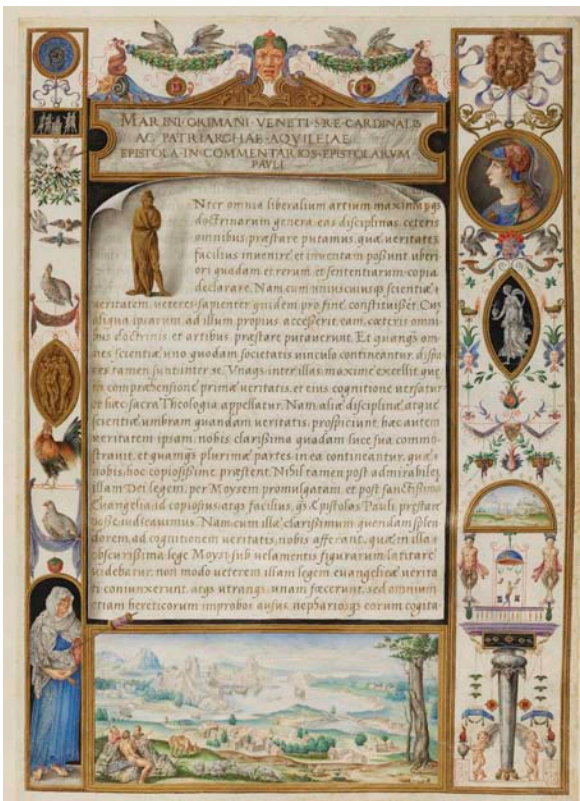 MARINI · GRIMANI · VENETI · S · R · E · CARDINALIS
AC · PATRIARCHAE · AQVILEIAE
EPISTOLA · IN · COMMENTARIOS · EPISTOLARVM
PAVLI
Nter omnia liberalium artium maxima, qȝ
doctrinorum genera, eas disciplinas ceteris
omnibus præstare putamus, quæ veritates
facilius invenire, et inventam poßunt uberi
ori quadam et rerum et sententiarum copia
declarare. Nam, cum uniuscuiusqȝ scientiæ
veritatem, veteres sapienter quidem pro fine constituißet. Cuȝ
aliqua ipsarum ad illum propius acceßerit, eam cæteris omni
bus doctrinis et artibus præstare putaverunt. Et quamqȝ om
nes scientiæ uno quodam societatis vinculo contineantur, dispa
res tamen sunt inter se. Unaqȝ inter illas maxime excellit quæ
in comprehensione primæ veritatis, et eius cognitione versatur
et hæc sacra Theologia appellatur. Nam aliæ disciplinæ atque
scientiæ umbram quandam veritatis prospiciunt, hæc autem
veritatem ipsam nobis clarißima quadam luce sua commō
stravit, et quamqȝ plurimæ partes in ea contineantur, quæ
nobis hoc copiosißime præstent. Nihil tamen post admirabileȝ
illam Dei legem, per Moysem promulgatam, et post sanctißima
Evangelia, id copiosius, atqȝ facilius, qȝ Epistolas Pauli, præstare
poße iudicavimus. Nam cum illæ clarißimum quendam splen
dorem, ad cognitionem veritatis, nobis afferant, quæ in illa
obscurißima lege Moysi sub velamentis figurarum latitare
videbatur, non modo veterem illam legem evangelicæ verita
ti coniunxerunt, atqȝ utranqȝ unam fœcerunt, sed omnium
etiam hereticorum improbos ausus, nepharioscqȝ eorum cogita